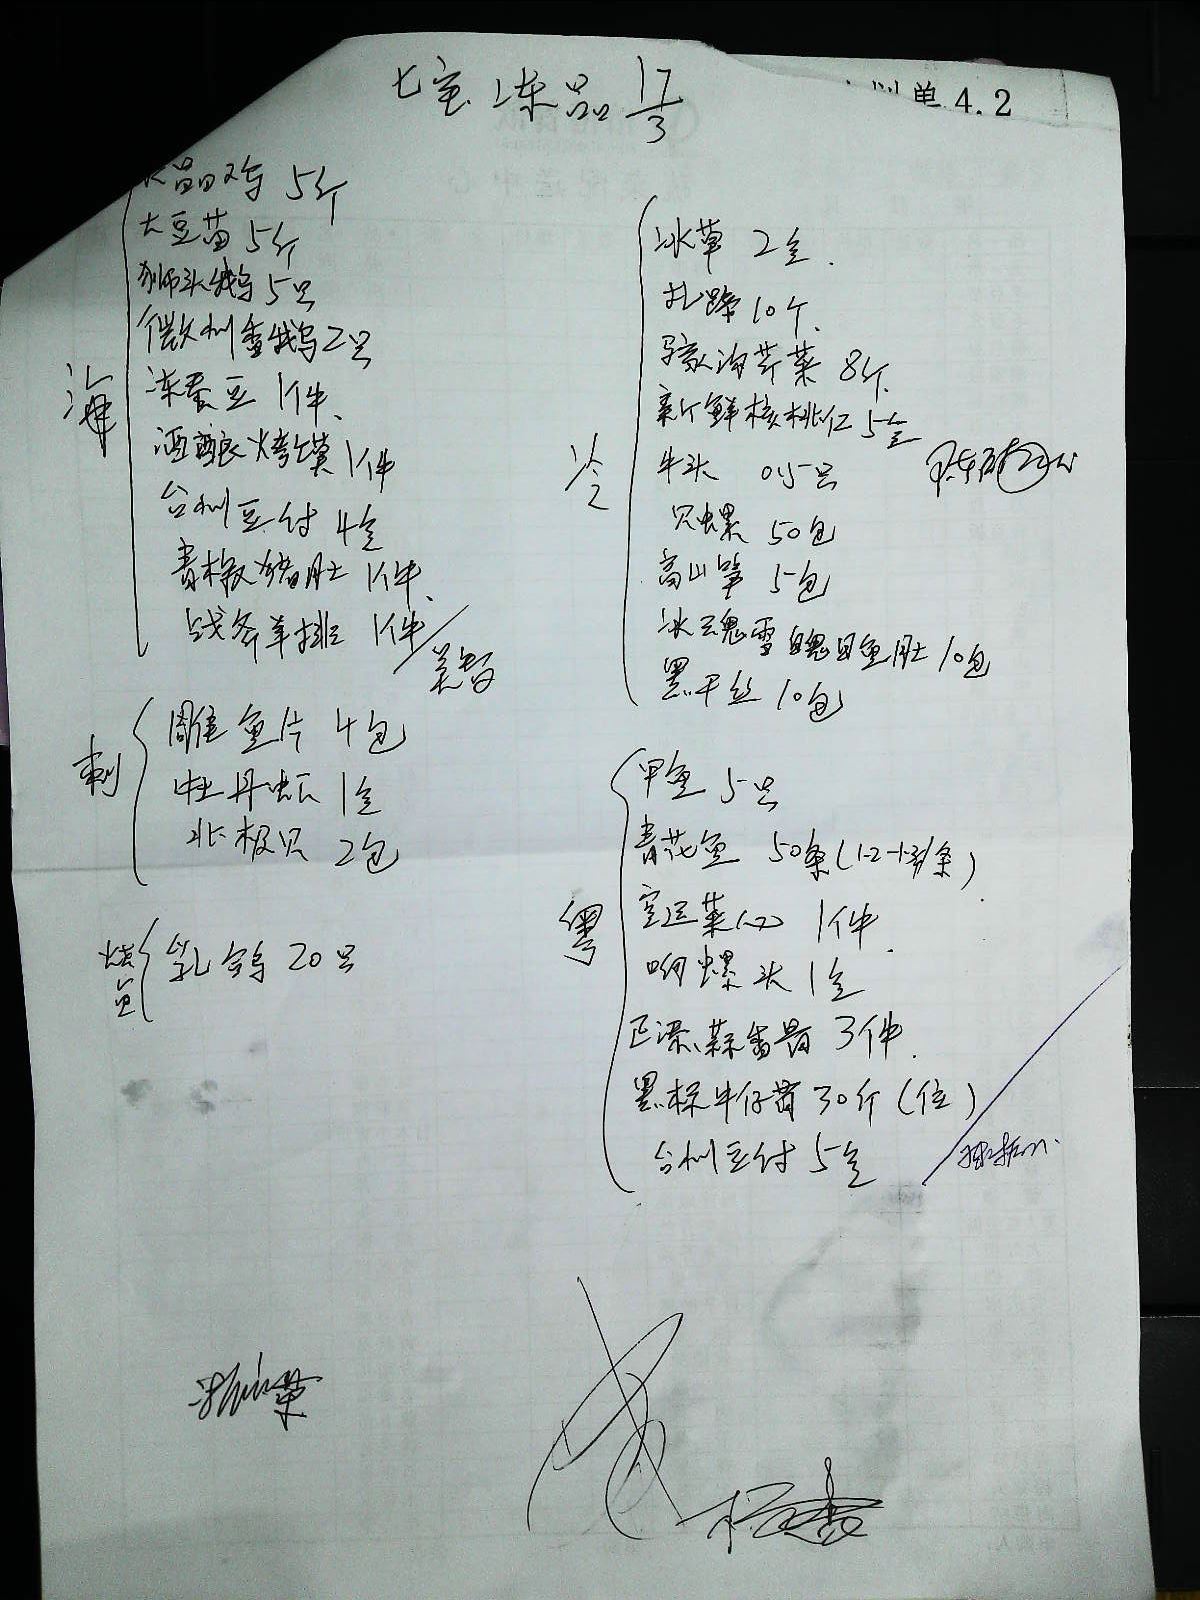 七宝冻品 17/3
划单4.2
水晶鸡 5斤
大豆苗 5斤
狮头鹅 5只
徽州香鹅 2只
海
冻蚕豆 1件
酒酿烤馍 1件
台州豆付 4盒
青椒猪肚 1件
战斧羊排 1件
刺
鲷鱼片 4包
牡丹虾 1盒
北极贝 2包
乳鸽 20只
冰草 2盒
扎蹄 10个
马家沟芹菜 8斤
新鲜核桃仁 5盒
冷
牛头 0.5只
贝螺 50包
高山笋 5包
冰魂雪魄目鱼肚 10包
黑干丝 10包
甲鱼 5只
青花鱼 50条(1.2-1.3/条)
粤
空运菜心 1件
响螺头 1盒
蒜香骨 3件
黑椒牛仔骨 30斤(位)
台州豆付 5盒